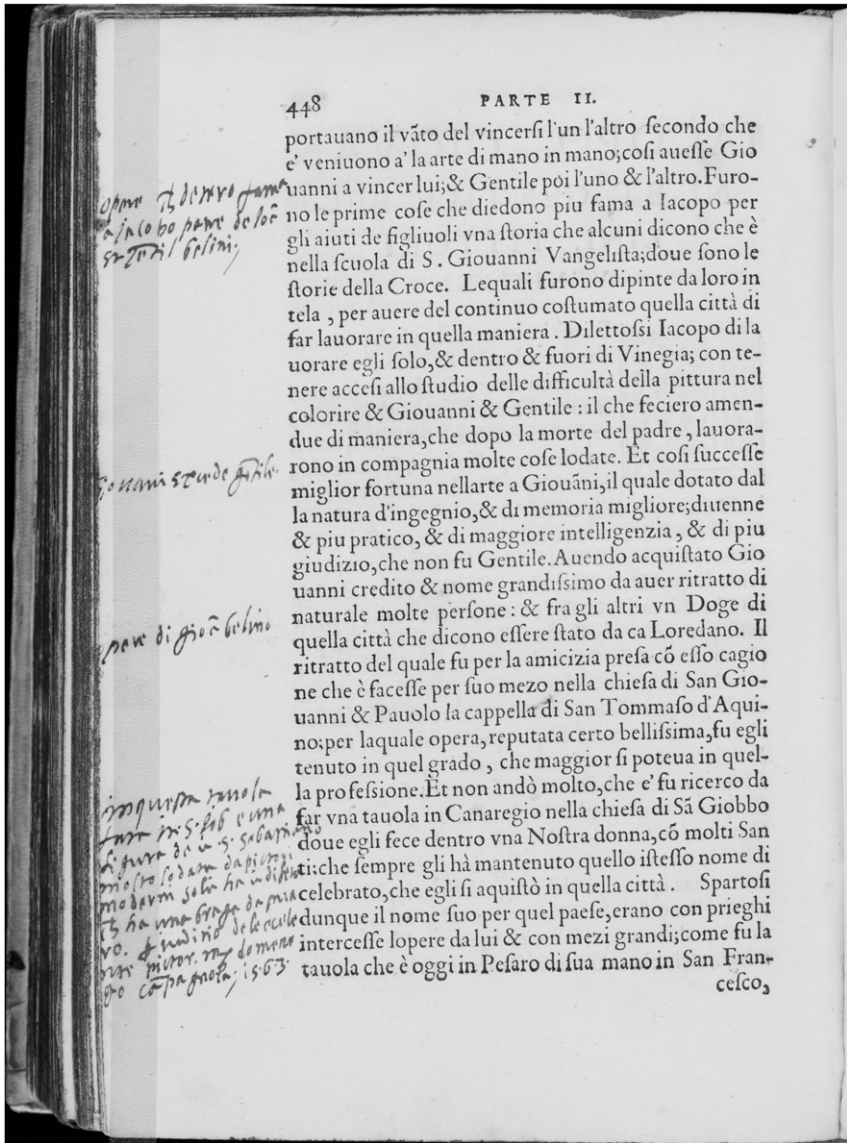 448 PARTE II.
portauano il vãto del vincerſi l'un l'altro ſecondo che
e' veniuono a' la arte di mano in mano; coſi aueſſe Gio
uanni a vincer lui; & Gentile poi l'uno & l'altro. Furo-
no le prime coſe che diedono piu fama a Iacopo per
gli aiuti de figliuoli vna ſtoria che alcuni dicono che è
nella ſcuola di S. Giouanni Vangeliſta; doue ſono le
ſtorie della Croce. Lequali furono dipinte da loro in
tela, per auere del continuo coſtumato quella città di
far lauorare in quella maniera. Dilettoſſi Iacopo di la
uorare egli ſolo, & dentro & fuori di Vinegia; con te-
nere acceſi allo ſtudio delle difficultà della pittura nel
colorire & Giouanni & Gentile: il che feciero amen-
due di maniera, che dopo la morte del padre, lauora-
rono in compagnia molte coſe lodate. Et coſi ſucceſſe
miglior fortuna nellarte a Giouãni, il quale dotato dal
la natura d'ingegnio, & di memoria migliore; diuenne
& piu pratico, & di maggiore intelligenzia, & di piu
giudizio, che non fu Gentile. Auendo acquiſtato Gio
uanni credito & nome grandiſsimo da auer ritratto di
naturale molte perſone: & fra gli altri vn Doge di
quella città che dicono eſſere ſtato da ca Loredano. Il
ritratto del quale fu per la amicizia preſa cõ eſſo cagio
ne che è faceſſe per ſuo mezo nella chieſa di San Gio-
uanni & Pauolo la cappella di San Tommaſo d'Aqui-
no; per laquale opera, reputata certo belliſsima, fu egli
tenuto in quel grado, che maggior ſi poteua in quel-
la profeſsione. Et non andò molto, che e' fu ricerco da
far vna tauola in Canaregio nella chieſa di Sã Giobbo
doue egli fece dentro vna Noſtra donna, cõ molti San
ti: che ſempre gli hà mantenuto quello iſteſſo nome di
celebrato, che egli ſi aquiſtò in quella città. Spartoſi
dunque il nome ſuo per quel paeſe, erano con prieghi
interceſſe lopere da lui & con mezi grandi; come fu la
tauola che è oggi in Peſaro di ſua mano in San Fran-
ceſco,
opere
a jacobo
belini
gentile
di gioã belino
in questa tauola
figura de
moderni
1563